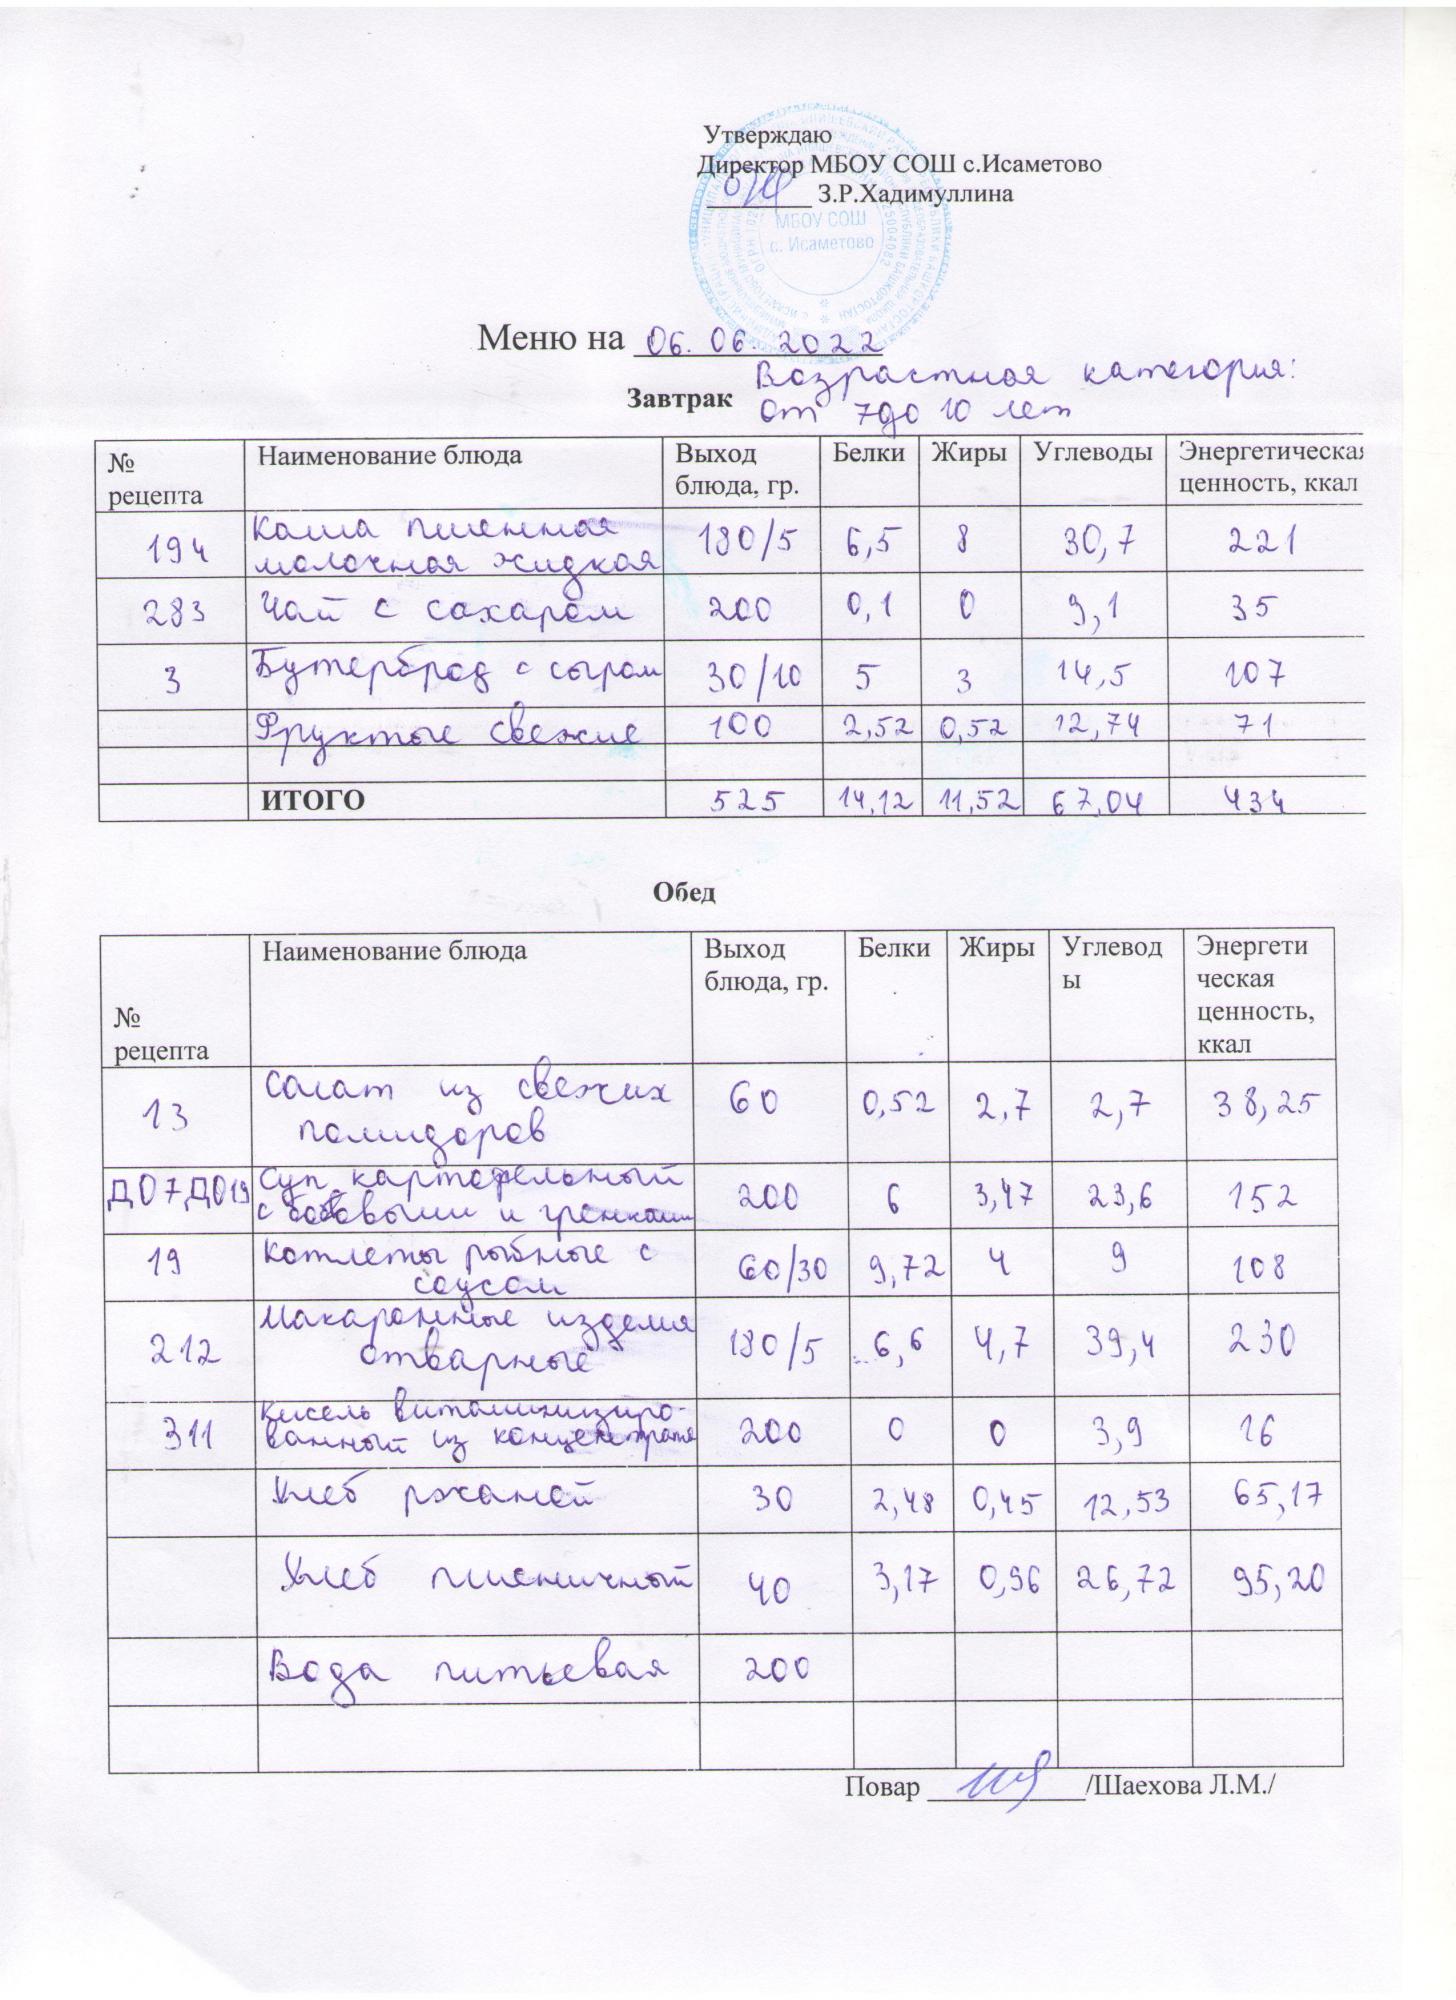 Утверждаю
Директор МБОУ СОШ с.Исаметово
З.Р.Хадимуллина
МБОУ СОШ
с. Исаметово
Меню на 06.06.2022
Возрастная категория:
Завтрак от 7 до 10 лет
№ рецепта Наименование блюда Выход блюда, гр. Белки Жиры Углеводы Энергетическая ценность, ккал
194 Каша пшенная молочная жидкая 180/5 6,5 8 30,7 221
283 Чай с сахаром 200 0,1 0 9,1 35
3 Бутерброд с сыром 30/10 5 3 14,5 107
Фрукты свежие 100 2,52 0,52 12,74 71
ИТОГО 525 14,12 11,52 67,04 434
Обед
№ рецепта Наименование блюда Выход блюда, гр. Белки Жиры Углеводы Энергетическая ценность, ккал
13 Салат из свежих помидоров 60 0,52 2,7 2,7 38,25
Д07,Д019 Суп картофельный с бобовыми и гренками 200 6 3,47 23,6 152
19 Котлеты рыбные с соусом 60/30 9,72 4 9 108
212 Макаронные изделия отварные 180/5 6,6 4,7 39,4 230
311 Кисель витаминизиро-ванный из концентрата 200 0 0 3,9 16
Хлеб ржаной 30 2,48 0,45 12,53 65,17
Хлеб пшеничный 40 3,17 0,96 26,72 95,20
Вода питьевая 200
Повар /Шаехова Л.М./